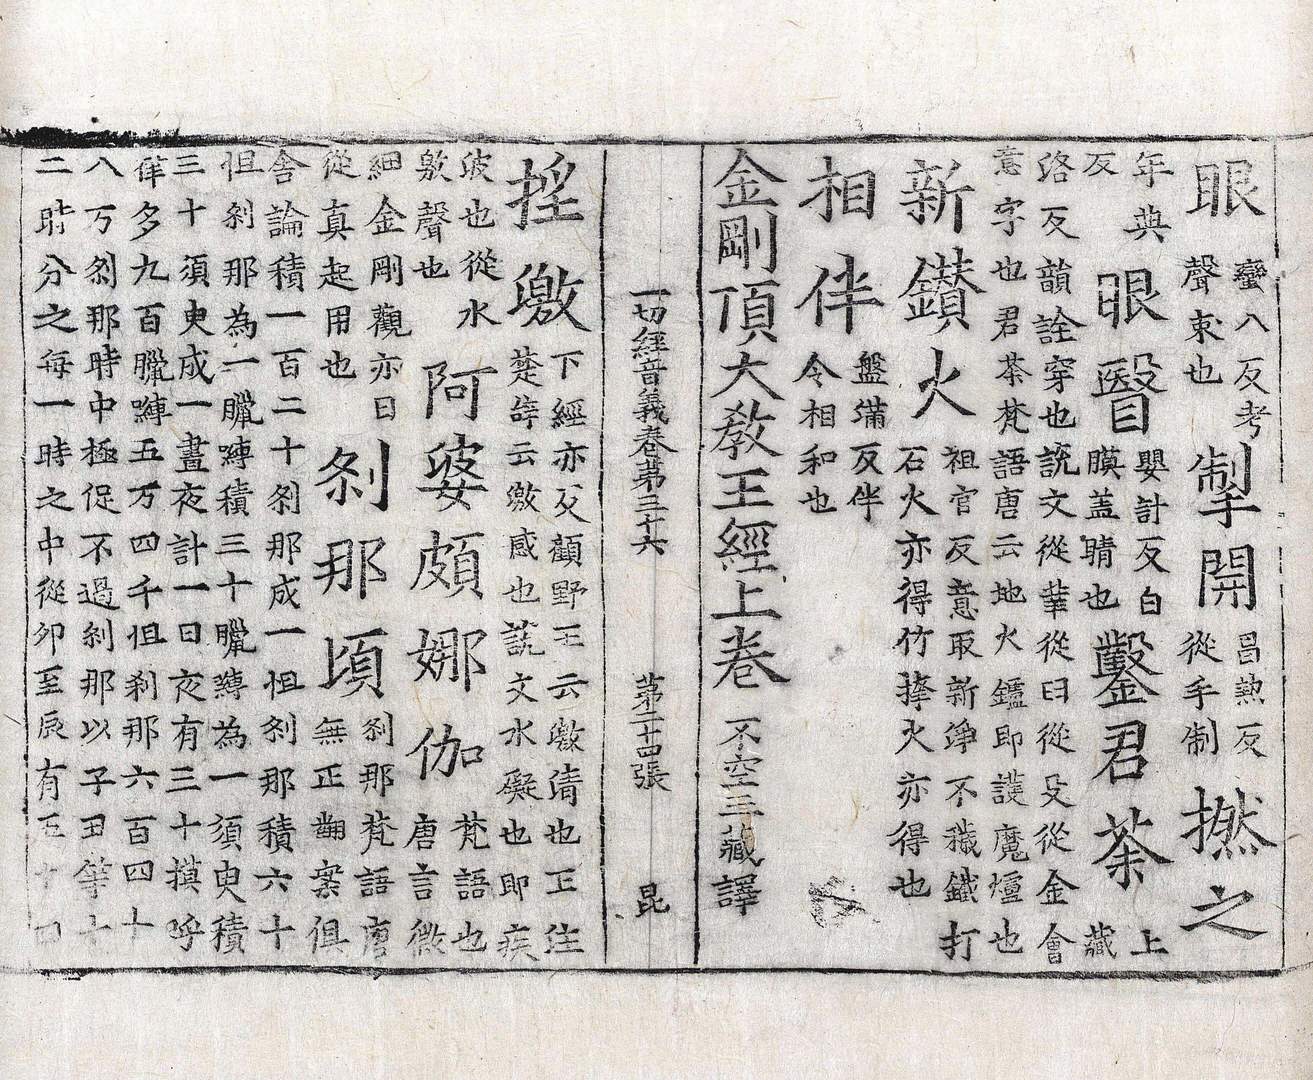 眼蠻八反考聲束也掣開昌熱反從手制撚之
年典反眼瞖嬰計反白膜盖睛也鑿君荼上藏
洛反韻詮穿也說文從丵從臼從殳從金會
意字也君荼梵語唐云地火鑪即護魔爐也
新鑽火祖官反意取新淨不穢鐵打石火亦得竹捽火亦得也
相伴盤滿反伴令相和也
金剛頂大教王經上卷 不空三藏譯
一切經音義卷第三十六 第二十四張 昆
揑激下經亦反顧野王云激清也王注楚辝云激感也說文水礙也即疾
波也從水激聲也阿婆頗娜伽梵語也唐言微
細金剛觀亦曰從真起用也剎那頃剎那梵語唐無正翻案俱
舍論積一百二十剎那成一怛剎那積六十
怛剎那為一臘嚩積三十臘嚩為一須臾積
三十須臾成一晝夜計一日夜有三十摸呼
律多九百臘嚩五万四千怛剎那六百四十
八万剎那時中極促不過剎那以子丑等十
二時分之每一時之中從卯至辰有五十四